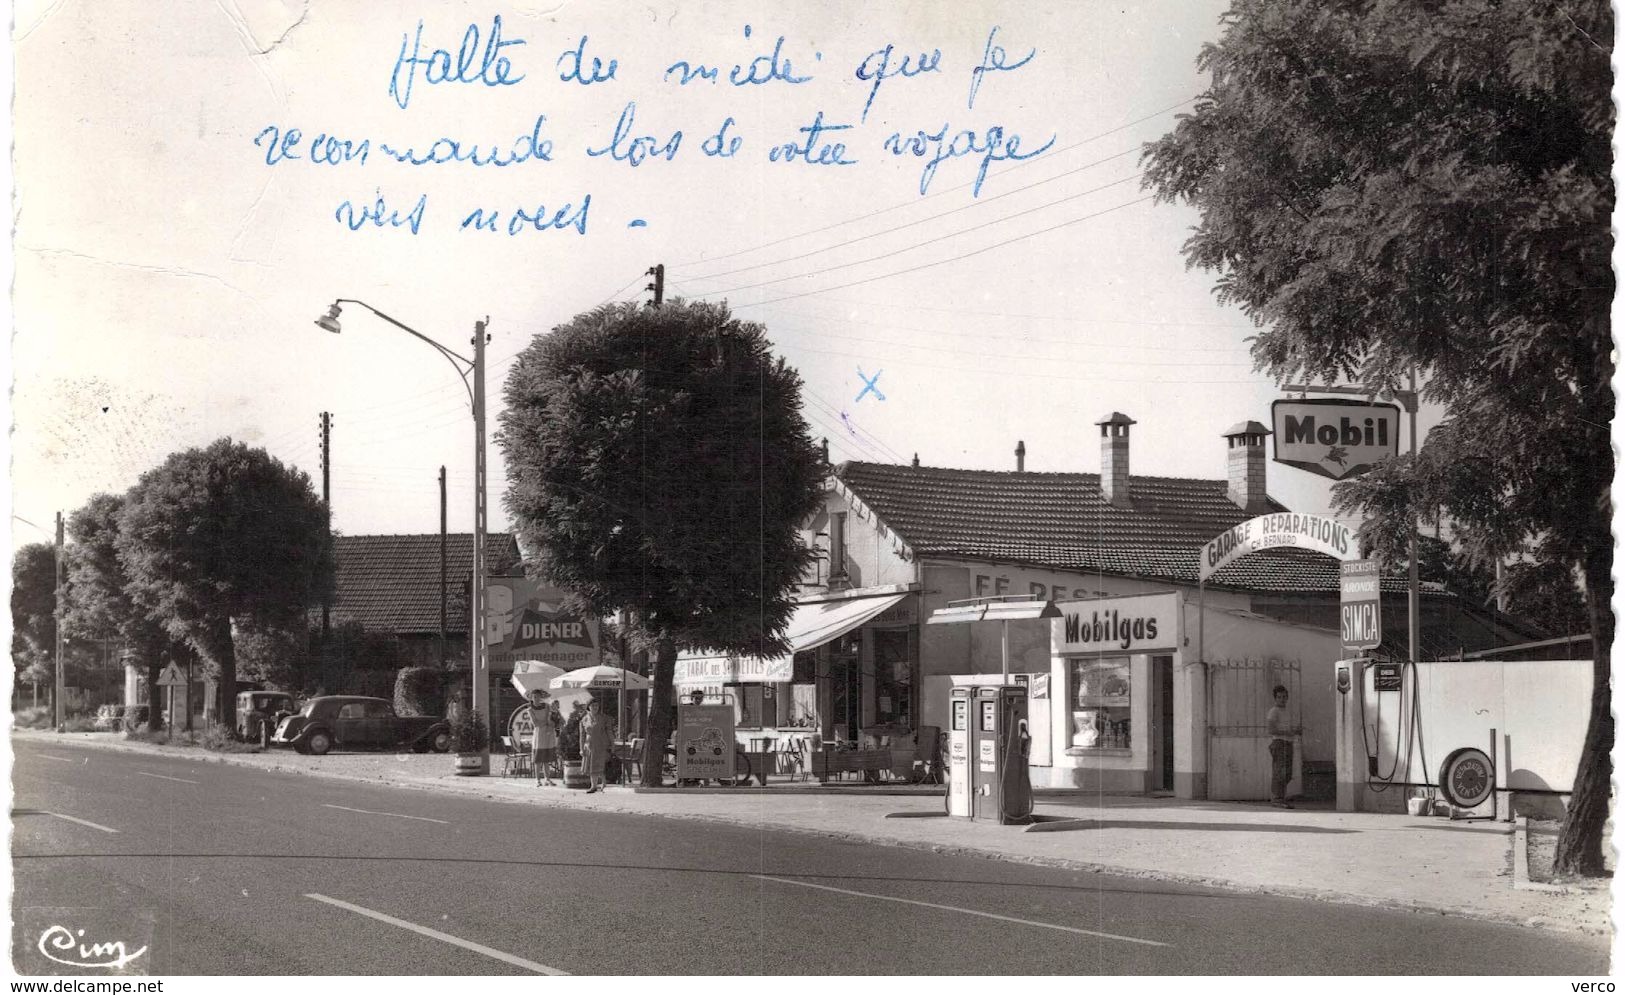 Halte du midi que je
recommande lors de votre voyage
vers nous -
Mobil
GARAGE RÉPARATIONS
CH. BERNARD
STOCKISTE
ARONDE
SIMCA
FÉ REST
Mobilgas
DIENER
confort ménager
BERGER
TABAC DES
Mobilgas
RÉPARATION
VENTE
Cim
www.delcampe.net
verco